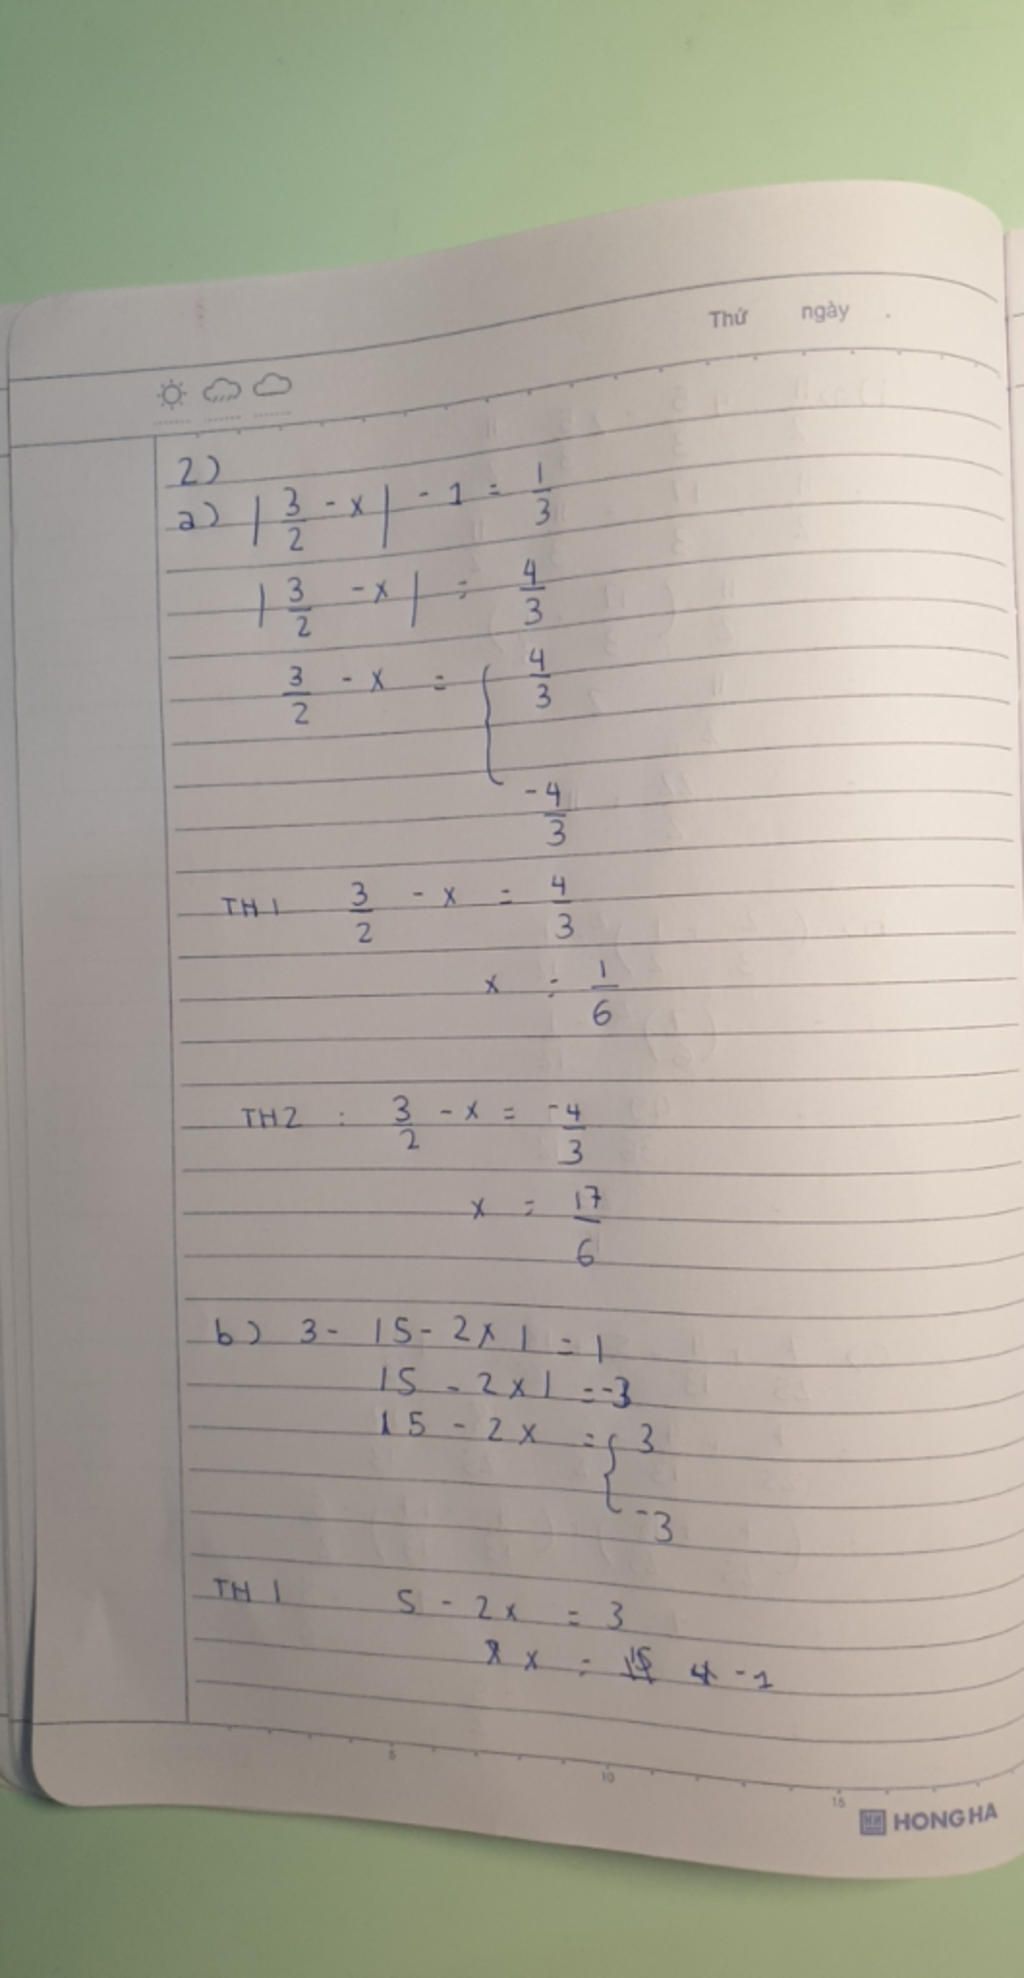 Thứ ngày .
2)
a) | 3/2 - x | - 1 = 1/3
| 3/2 - x | = 4/3
3/2 - x = { 4/3
-4/3
TH1 3/2 - x = 4/3
x = 1/6
TH2 : 3/2 - x = -4/3
x = 17/6
b) 3 - |5 - 2x| = 1
|5 - 2x| = -3
15 - 2x = { 3
-3
TH1 5 - 2x = 3
x = -1
5 10 15
HH HONG HA